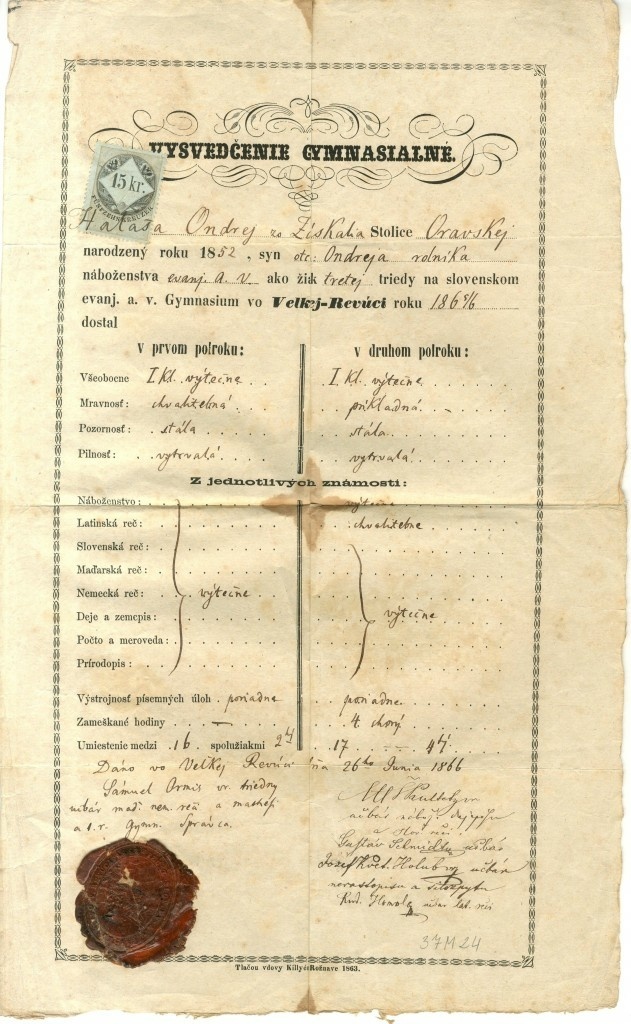 VYSVEDČENIE GYMNASIALNÉ.
15 kr.
FÜNFZEHN KREUZER
Halaša Ondrej zo Stolice Oravskej
narodzený roku 1852, syn otc: Ondreja rolníka
náboženstva evanj. a. v. ako žiak tretej triedy na slovenskom
evanj. a. v. Gymnasium vo Velkej-Revúci roku 1865/6
dostal
v prvom polroku: v druhom polroku:
Všeobecne I Kl. výtečne I Kl. výtečne
Mravnosť: chvalitebná príkladná
Pozornosť: stála stála
Pilnosť: vytrvalá vytrvalá
Z jednotlivých známostí:
Náboženstvo: výtečne
Latinská reč: chvalitebne
Slovenská reč:
Maďarská reč:
Nemecká reč: výtečne
Deje a zemepis: výtečne
Počto a meroveda:
Prírodopis:
Výstrojnosť písemných úloh poriadne poriadne
Zameškané hodiny — 4 chorý
Umiestenie medzi 16 spolužiakmi 2hý 17 4tý
Dáno vo Velkej Revúci dňa 26ho Junia 1866
Sámuel Ormis vr. triedny
učbár maď. nem. reči a
a t. r. Gymn. Správca.
Gustáv Schmidt učbár
Józéf Kvet. Holuby učbár
lat. reči
37M24
Tlačou vdovy Killyér Rožnave 1863.